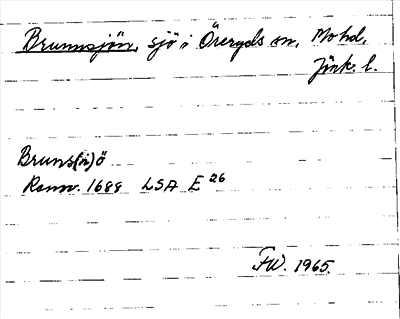 Brunnsjön, sjö i Öreryds sn, Mo hd,
Jönk. l.
Bruns(n)ö
Rannr. 1688 LSA E 26
FW. 1965.